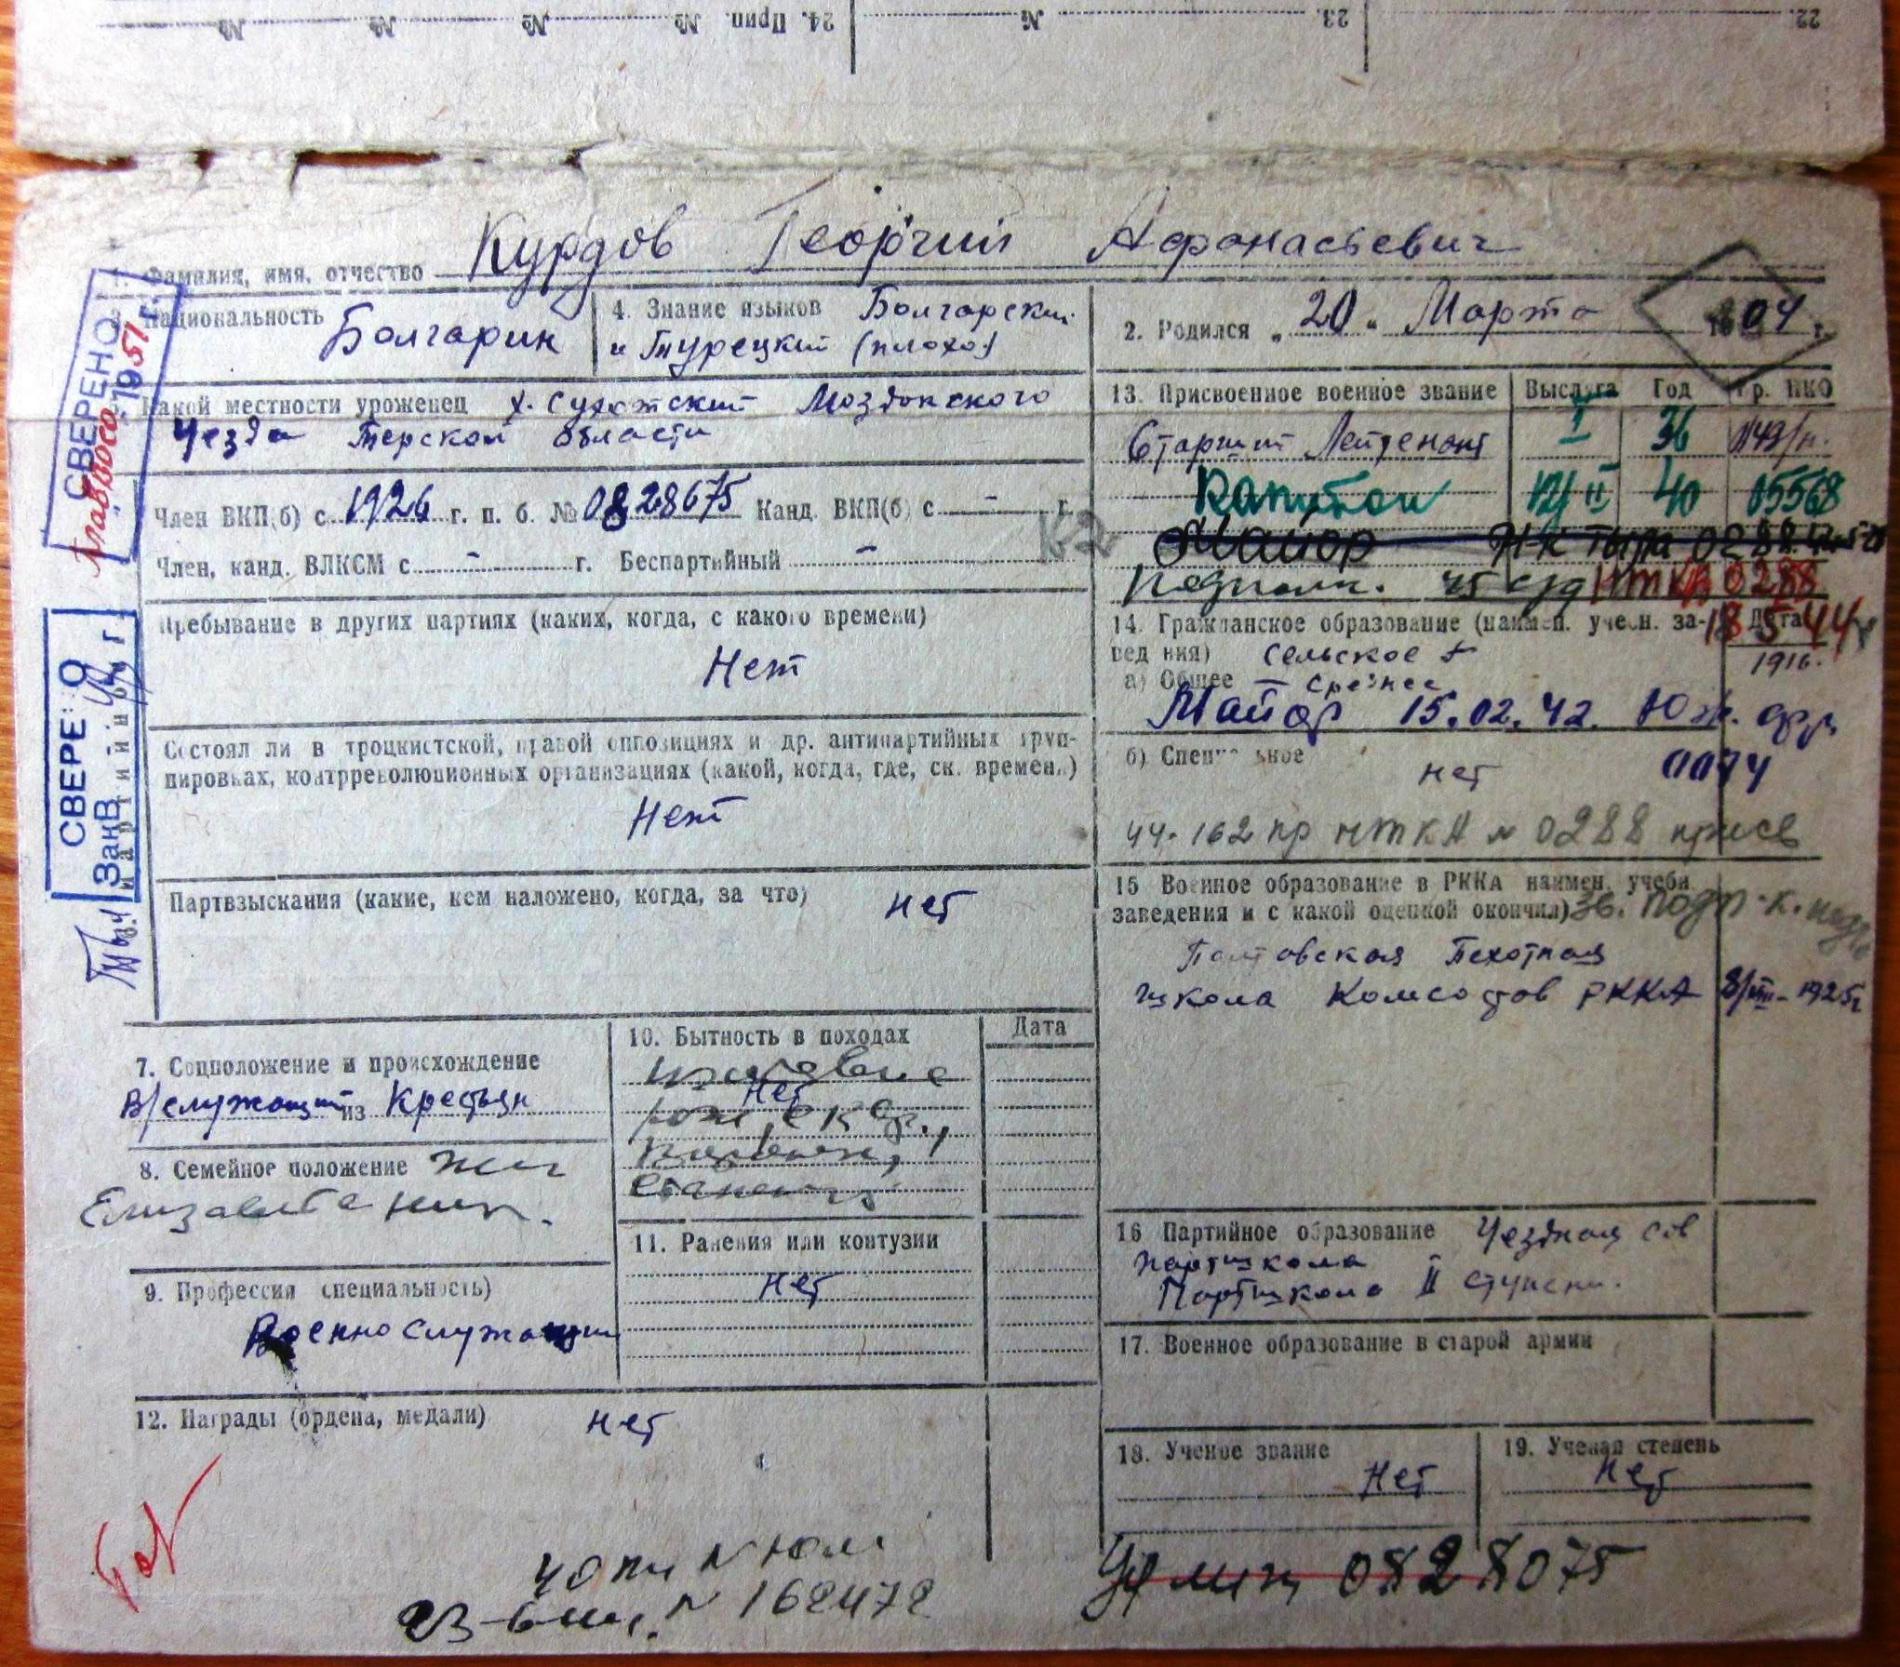 22.
23.
№
24. Прип. № № № №
Курдов Георгий Афанасьевич
1. Фамилия, имя, отчество
3. Национальность Болгарин
4. Знание языков Болгарский
и Турецкий (плохо)
2. Родился „20" Марта 1904 г.
Какой местности уроженец х. Сухотский Моздокского
Уезда Терской области
Член ВКП(б) с 1926 г. п. б. № 0828675 Канд. ВКП(б) с - г.
Член, канд. ВЛКСМ с - г. Беспартийный -
К2
Пребывание в других партиях (каких, когда, с какого времени)
Нет
Состоял ли в троцкистской, правой оппозициях и др. антипартийных груп-
пировках, контрреволюционных организациях (какой, когда, где, ск. времени)
Нет
Партвзыскания (какие, кем наложено, когда, за что) нет
СВЕРЕНО
1951 г.
СВЕРЕНО
ЗакВ
Партийн
7. Соцположение и происхождение
В/служащий из Крестьян
8. Семейное положение жен
Елизавета Ник.
9. Профессия (специальность)
Военнослужащий
10. Бытность в походах
Дата
Нет
11. Ранения или контузии
Нет
12. Награды (ордена, медали) нет
13. Присвоенное военное звание Выслуга Год Пр. НКО
Старший Лейтенант I 36 1149/п.
Капитан II 40 05568
Майор НК Тыла 0288
Подполк. 45 сд НТКА 0288
18 5 44
14. Гражданское образование (наимен. учебн. за-
ведения) Дата
сельское 1916.
а) Общее — Среднее
Майор 15.02.42. Юж. фр.
0074
б) Специальное
нет
44-162 пр НТКА № 0288 присв
15 Военное образование в РККА (наимен. учебн.
заведения и с какой оценкой окончил)
зв. подп-к.
Полтовская Пехотная
школа Комсостов РККА 8/VIII-1925г
16 Партийное образование Уездная сов
партшкола
Партшкола II ступени.
17. Военное образование в старой армии
18. Ученое звание
Нет
19. Ученая степень
Нет
N 162472
0828075